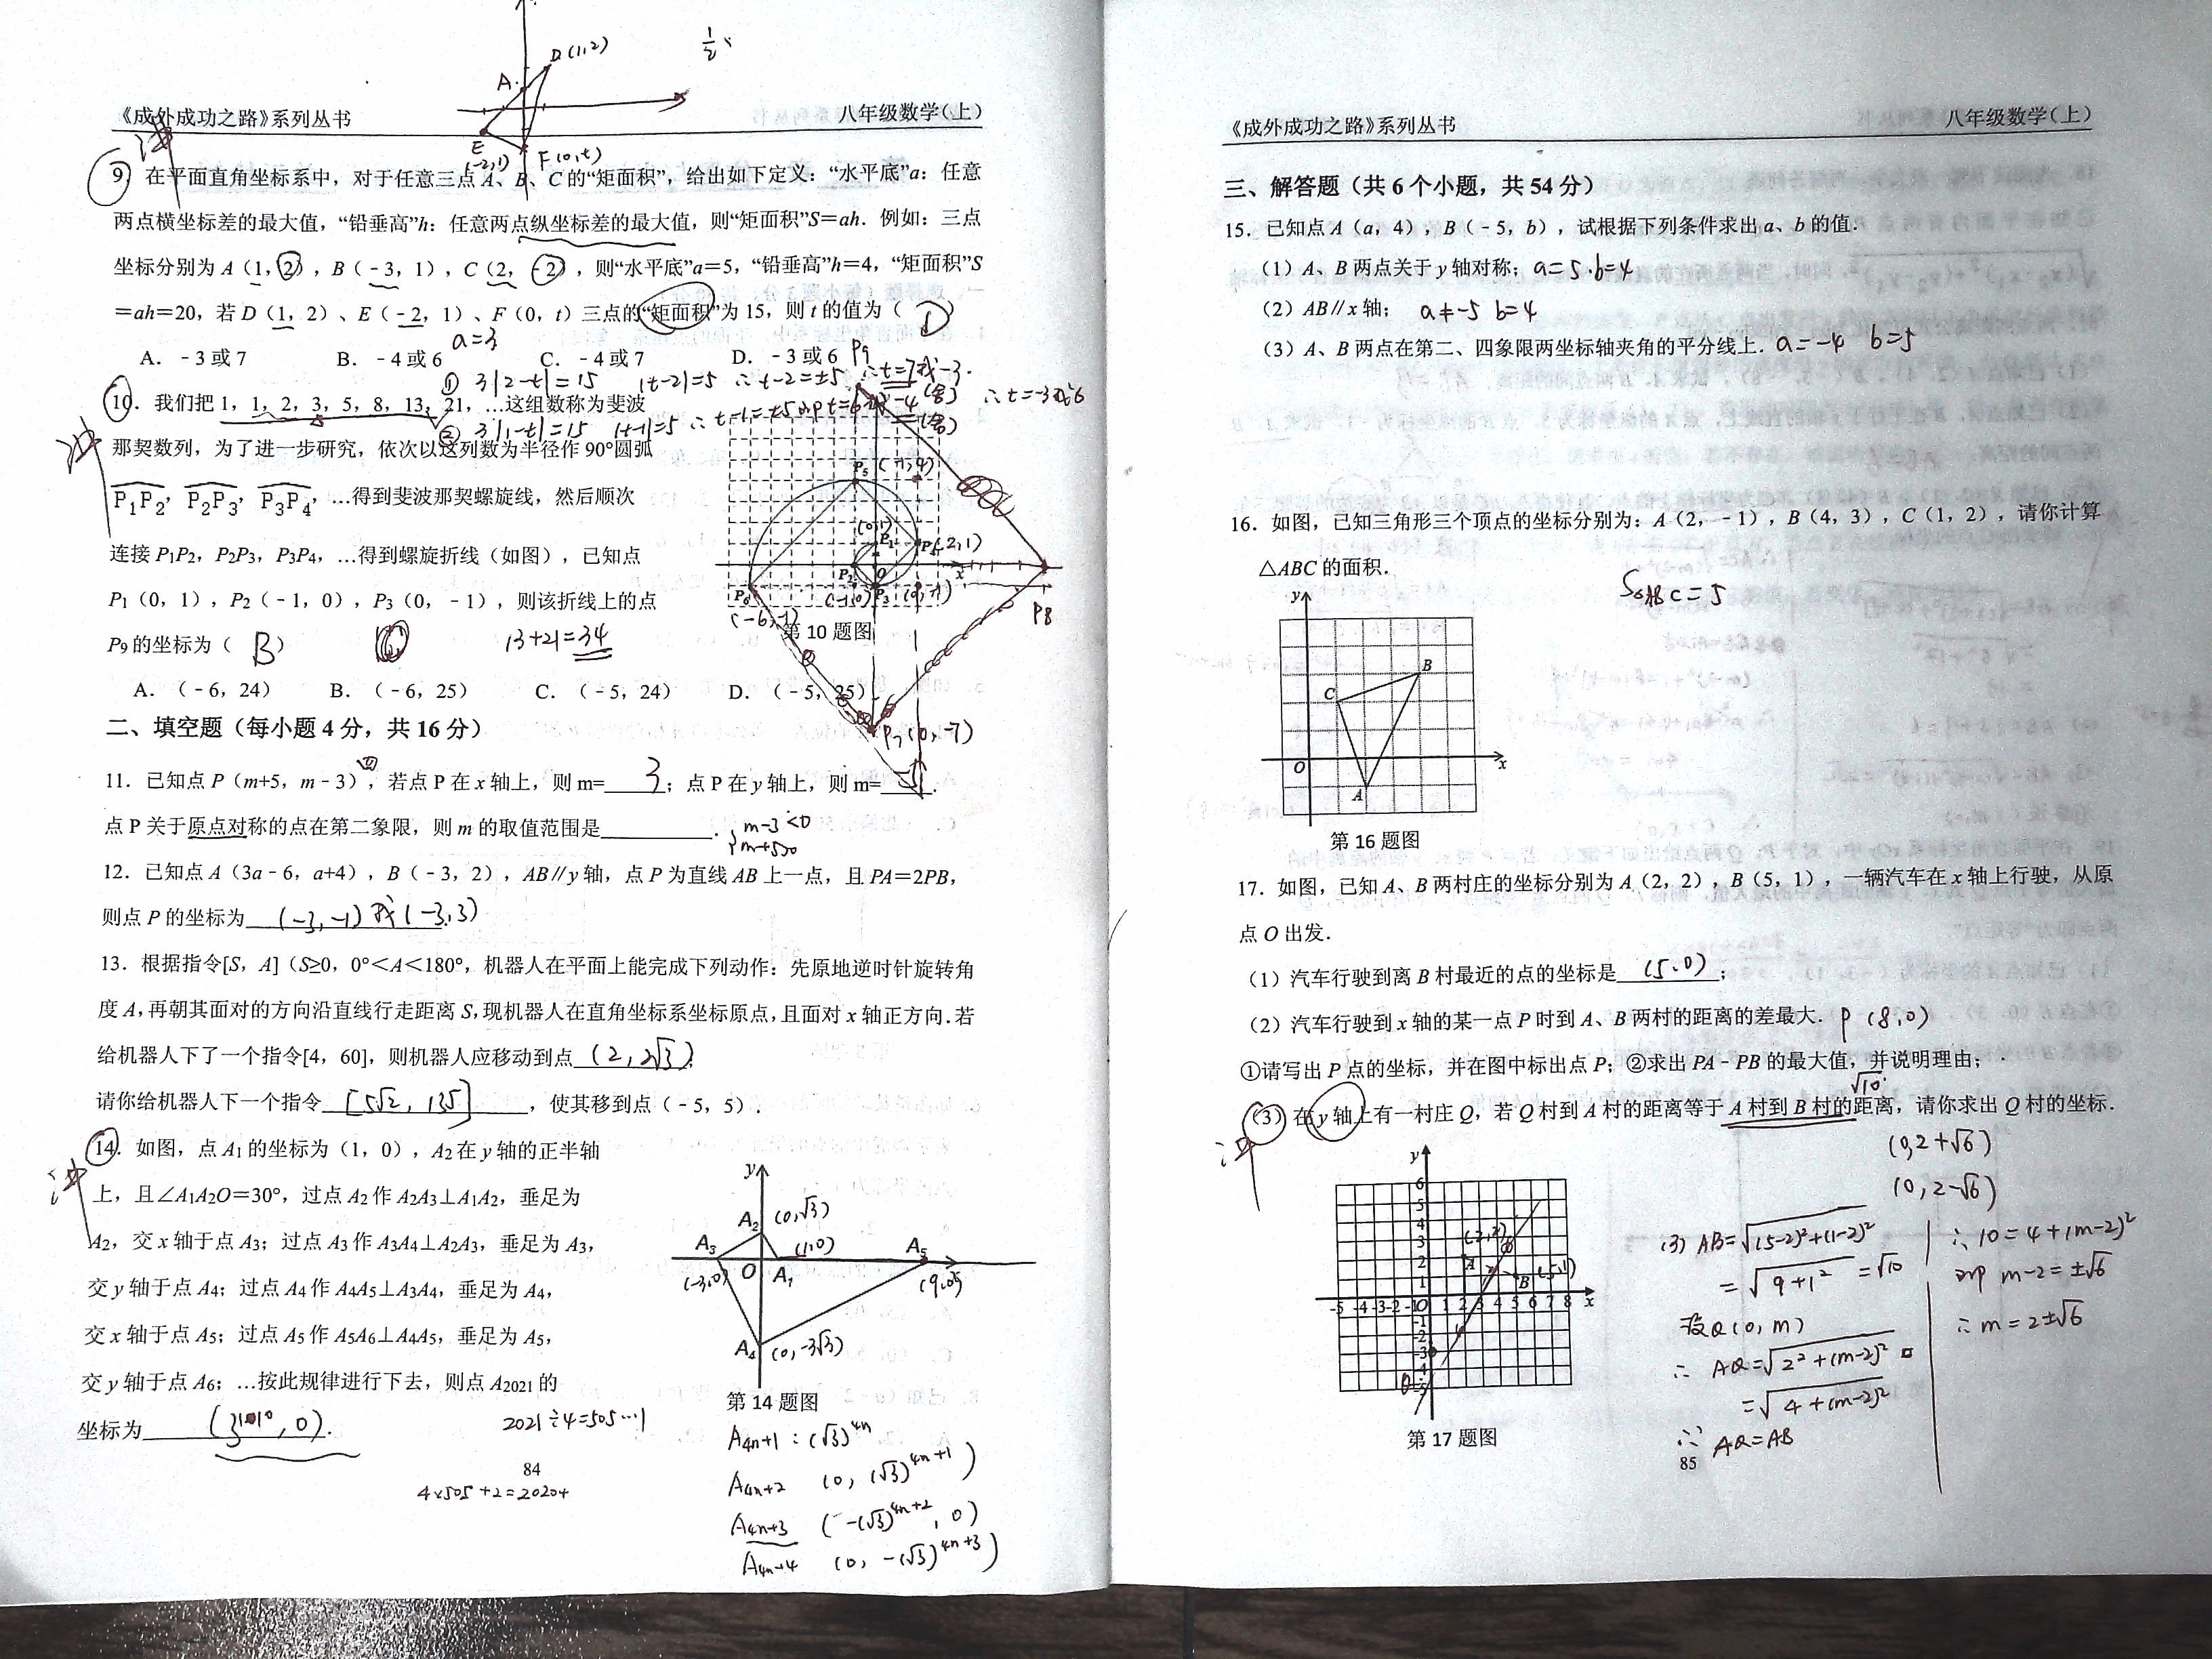 《成外成功之路》系列丛书 八年级数学（上）
D(1,2)
A
E
(-2,1)
F(0,t)
9 在平面直角坐标系中，对于任意三点 A、B、C 的“矩面积”，给出如下定义：“水平底”a：任意
两点横坐标差的最大值，“铅垂高”h：任意两点纵坐标差的最大值，则“矩面积”S＝ah．例如：三点
坐标分别为 A（1，2），B（﹣3，1），C（2，﹣2），则“水平底”a＝5，“铅垂高”h＝4，“矩面积”S
＝ah＝20，若 D（1，2）、E（﹣2，1）、F（0，t）三点的“矩面积”为 15，则 t 的值为（ D ）
a=3
A．﹣3 或 7 B．﹣4 或 6 C．﹣4 或 7 D．﹣3 或 6
① 3|2-t|=15 |t-2|=5 ∴t-2=±5 ∴t=7或-3.
(舍) ∴t=-3或6
10．我们把 1，1，2，3，5，8，13，21，…这组数称为斐波
② 3|1-t|=15 |t-1|=5 ∴t-1=±5 即t=6或-4 (舍)
那契数列，为了进一步研究，依次以这列数为半径作 90°圆弧
P₁P₂，P₂P₃，P₃P₄，…得到斐波那契螺旋线，然后顺次
连接 P₁P₂，P₂P₃，P₃P₄，…得到螺旋折线（如图），已知点
P₁（0，1），P₂（﹣1，0），P₃（0，﹣1），则该折线上的点
P₉ 的坐标为（ B ） 13+21=34
A．（﹣6，24） B．（﹣6，25） C．（﹣5，24） D．（﹣5，25）
P9
P₅ (-1,4)
(0,1)
P₁
P₄ (2,1)
P₂ O x
P₆ (-1,0) P₃ (0,-1)
(-6,-1)
P8
第 10 题图
P7(0,-7)
二、填空题（每小题 4 分，共 16 分）
四
11．已知点 P（m+5，m﹣3），若点 P 在 x 轴上，则 m= 3 ；点 P 在 y 轴上，则 m= -5 ．
点 P 关于原点对称的点在第二象限，则 m 的取值范围是 ．
m-3<0
m+5>0
12．已知点 A（3a﹣6，a+4），B（﹣3，2），AB∥y 轴，点 P 为直线 AB 上一点，且 PA＝2PB，
则点 P 的坐标为 (-3,-1)或(-3,3) ．
13．根据指令[S，A]（S≥0，0°＜A＜180°，机器人在平面上能完成下列动作：先原地逆时针旋转角
度 A，再朝其面对的方向沿直线行走距离 S，现机器人在直角坐标系坐标原点，且面对 x 轴正方向．若
给机器人下了一个指令[4，60]，则机器人应移动到点 (2,2√3) ；
请你给机器人下一个指令 [5√2,135] ，使其移到点（﹣5，5）．
14．如图，点 A₁ 的坐标为（1，0），A₂ 在 y 轴的正半轴
上，且∠A₁A₂O＝30°，过点 A₂ 作 A₂A₃⊥A₁A₂，垂足为
A₂，交 x 轴于点 A₃；过点 A₃ 作 A₃A₄⊥A₂A₃，垂足为 A₃，
交 y 轴于点 A₄；过点 A₄ 作 A₄A₅⊥A₃A₄，垂足为 A₄，
交 x 轴于点 A₅；过点 A₅ 作 A₅A₆⊥A₄A₅，垂足为 A₅，
交 y 轴于点 A₆；…按此规律进行下去，则点 A₂₀₂₁ 的
坐标为 (3¹⁰¹⁰,0) ．
y
A₂ (0,√3)
A₃ (1,0) A₅
(-3,0) O A₁ (9,0)
A₄ (0,-3√3)
第 14 题图
2021÷4=505…1
A4n+1 : (√3)^4n
A4n+2 (0, (√3)^4n+1)
A4n+3 (-(√3)^4n+2, 0)
A4n+4 (0, -(√3)^4n+3)
84
4×505+2=2020+
《成外成功之路》系列丛书 八年级数学（上）
三、解答题（共 6 个小题，共 54 分）
15．已知点 A（a，4），B（﹣5，b），试根据下列条件求出 a、b 的值．
（1）A、B 两点关于 y 轴对称；a=5 b=4
（2）AB∥x 轴； a≠-5 b=4
（3）A、B 两点在第二、四象限两坐标轴夹角的平分线上．a=-4 b=5
16．如图，已知三角形三个顶点的坐标分别为：A（2，﹣1），B（4，3），C（1，2），请你计算
△ABC 的面积．
S△ABC=5
y
B
C
O x
A
第 16 题图
17．如图，已知 A、B 两村庄的坐标分别为 A（2，2），B（5，1），一辆汽车在 x 轴上行驶，从原
点 O 出发．
（1）汽车行驶到离 B 村最近的点的坐标是 (5,0) ；
（2）汽车行驶到 x 轴的某一点 P 时到 A、B 两村的距离的差最大．P(8,0)
①请写出 P 点的坐标，并在图中标出点 P；②求出 PA﹣PB 的最大值，并说明理由；
√10
（3）在 y 轴上有一村庄 Q，若 Q 村到 A 村的距离等于 A 村到 B 村的距离，请你求出 Q 村的坐标．
(0,2+√6)
(0,2-√6)
y
6
5
4
3
2
1
(2,2)
A
B (5,1)
-5 -4 -3 -2 -1 O 1 2 3 4 5 6 7 8 x
-1
-2
-3
-4
-5
第 17 题图
(3) AB=√(5-2)²+(1-2)²
=√9+1² =√10
设Q(0,m)
∴ AQ=√2²+(m-2)²
=√4+(m-2)²
∵ AQ=AB
∴ 10=4+(m-2)²
即 m-2=±√6
∴ m=2±√6
85